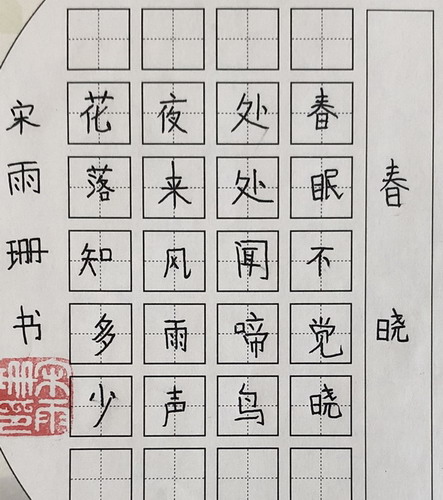 春晓
春眠不觉晓
处处闻啼鸟
夜来风雨声
花落知多少
宋雨珊书
宋雨珊印